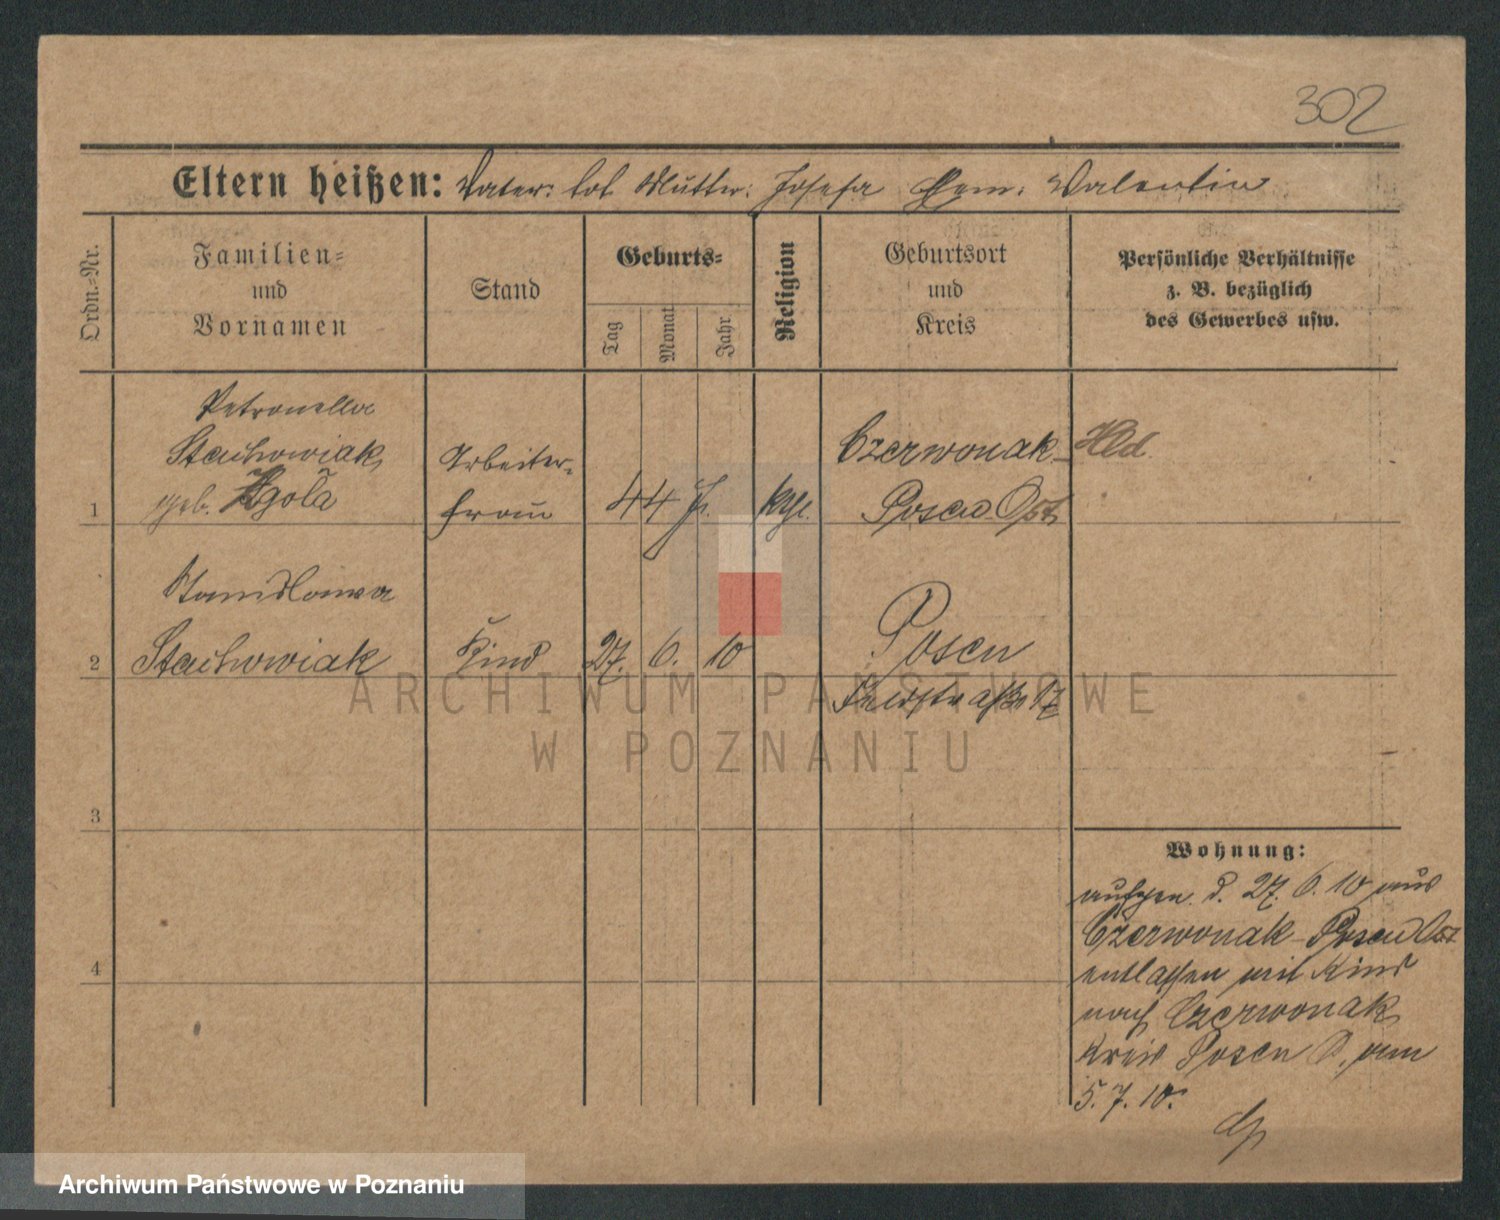 302
Eltern heißen: Vater: tot Mutter: Josefa Ehem: Valentin
Ordn.-Nr.
Familien- und Vornamen
Stand
Geburts-
Tag
Monat
Jahr
Religion
Geburtsort und Kreis
Persönliche Verhältnisse
z. B. bezüglich
des Gewerbes usw.
Petronella
Stachowiak
geb.
Arbeiter-
frau
44 J.
kth.
Czerwonak
Posen Ost
1
Stanislawa
Stachowiak
Kind
27. 6. 10
Posen
2
3
4
Wohnung:
aufgen. d. 27. 6. 10 aus
Czerwonak Posen Ost
entlassen mit Kind
nach Czerwonak
Kreis Posen O. am
5. 7. 10.
ARCHIWUM PAŃSTWOWE
W POZNANIU
Archiwum Państwowe w Poznaniu